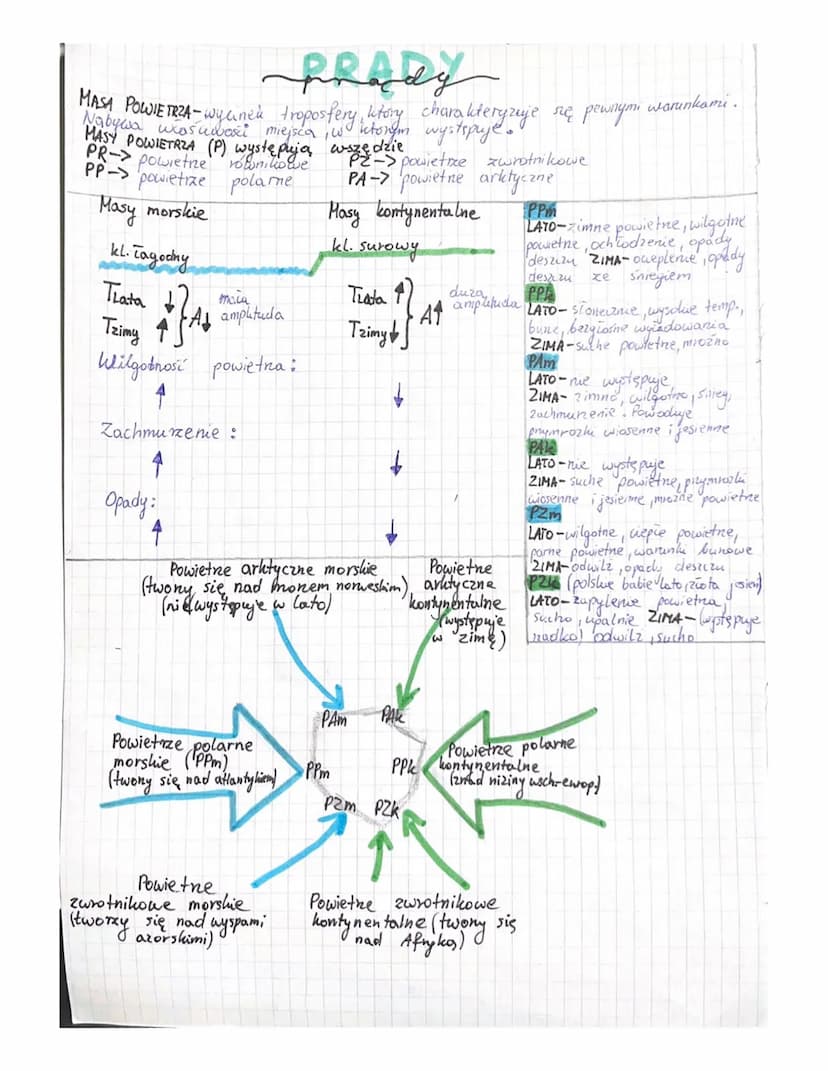 PRĄDY
prądy
MASA POWIETRZA - wycinek troposfery, który charakteryzuje się pewnymi warunkami.
Nabywa właściwości miejsca, w którym występuje.
MASY POWIETRZA (P) występują wszędzie
PR -> powietrze równikowe PZ -> powietrze zwrotnikowe
PP -> powietrze polarne PA -> powietrze arktyczne
Masy morskie
kl. łagodny
TLata ↓ } A↓ mała amplituda
Tzimy ↑
Masy kontynentalne
kl. surowy
TLata ↑ } A↑ duża amplituda
Tzimy ↓
Wilgotność powietrza:
↑ ↓
Zachmurzenie:
↑ ↓
Opady:
↑ ↓
PPm
LATO - zimne powietrze, wilgotne
powietrze, ochłodzenie, opady
deszczu ZIMA - ocieplenie, opady
deszczu ze śniegiem
PPk
LATO - słonecznie, wysokie temp.,
burze, bezgłośne wyładowania
ZIMA - suche powietrze, mroźno
PAm
LATO - nie występuje
ZIMA - zimno, wilgotno, śnieg,
zachmurzenie. Powoduje
przymrozki wiosenne i jesienne
PAk
LATO - nie występuje
ZIMA - suche powietrze, przymrozki
wiosenne i jesienne, mroźne powietrze
PZm
LATO - wilgotne, ciepłe powietrze,
parne powietrze, warunki burzowe
ZIMA - odwilż, opady deszczu
PZk (polskie babie lato, złota jesień)
LATO - zapylenie powietrza,
sucho, upalnie ZIMA - (występuje
rzadko) odwilż, sucho
Powietrze arktyczne morskie
(tworzy się nad morzem norweskim)
(nie występuje w lato)
Powietrze
arktyczna
kontynentalne
(występuje
w zimę)
PAm PAk
Powietrze polarne
morskie (PPm)
(tworzy się nad atlantykiem)
PPm PPk
Powietrze polarne
kontynentalne
(znad niziny wsch-europ)
PZm PZk
Powietrze
zwrotnikowe morskie
(tworzy się nad wyspami
azorskimi)
Powietrze zwrotnikowe
kontynentalne (tworzy się
nad Afryką)